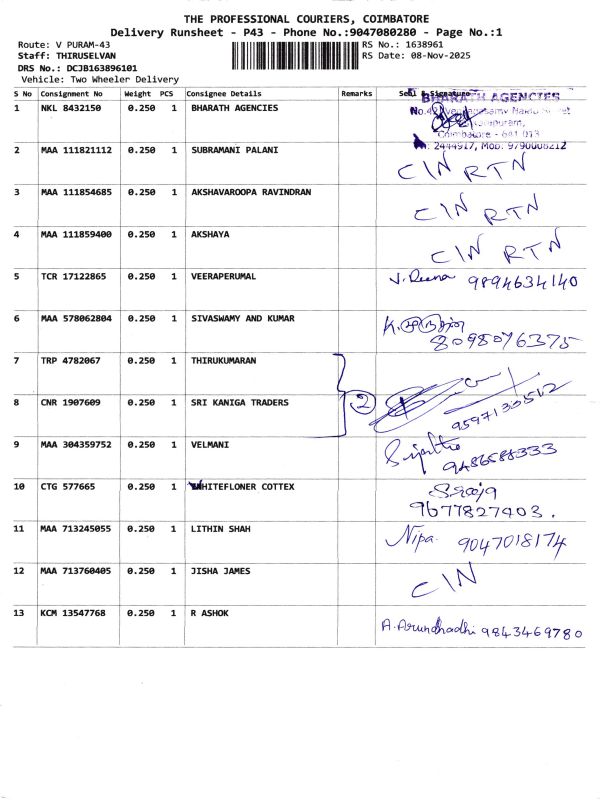 THE PROFESSIONAL COURIERS, COIMBATORE
Delivery Runsheet - P43 - Phone No.:9047080280 - Page No.:1
Route: V PURAM-43 RS No.: 1638961
Staff: THIRUSELVAN RS Date: 08-Nov-2025
DRS No.: DCJB163896101
Vehicle: Two Wheeler Delivery
S No Consignment No Weight PCS Consignee Details Remarks Seal & Signature
1 NKL 8432150 0.250 1 BHARATH AGENCIES
BHARATH AGENCIES
Coimbatore - 641 013
2444917, Mob: 9790006212
2 MAA 111821112 0.250 1 SUBRAMANI PALANI CIN RTN
3 MAA 111854685 0.250 1 AKSHAVAROOPA RAVINDRAN CIN RTN
4 MAA 111859400 0.250 1 AKSHAYA CIN RTN
5 TCR 17122865 0.250 1 VEERAPERUMAL V. Reena 9894634140
6 MAA 578062804 0.250 1 SIVASWAMY AND KUMAR K.
8098076375
7 TRP 4782067 0.250 1 THIRUKUMARAN
8 CNR 1907609 0.250 1 SRI KANIGA TRADERS 2
9597133512
9 MAA 304359752 0.250 1 VELMANI
9486588333
10 CTG 577665 0.250 1 WHITEFLONER COTTEX Saroja
9677827403.
11 MAA 713245055 0.250 1 LITHIN SHAH Nipa. 9047018174
12 MAA 713760405 0.250 1 JISHA JAMES CIN
13 KCM 13547768 0.250 1 R ASHOK
A. Arundhadhi 9843469780